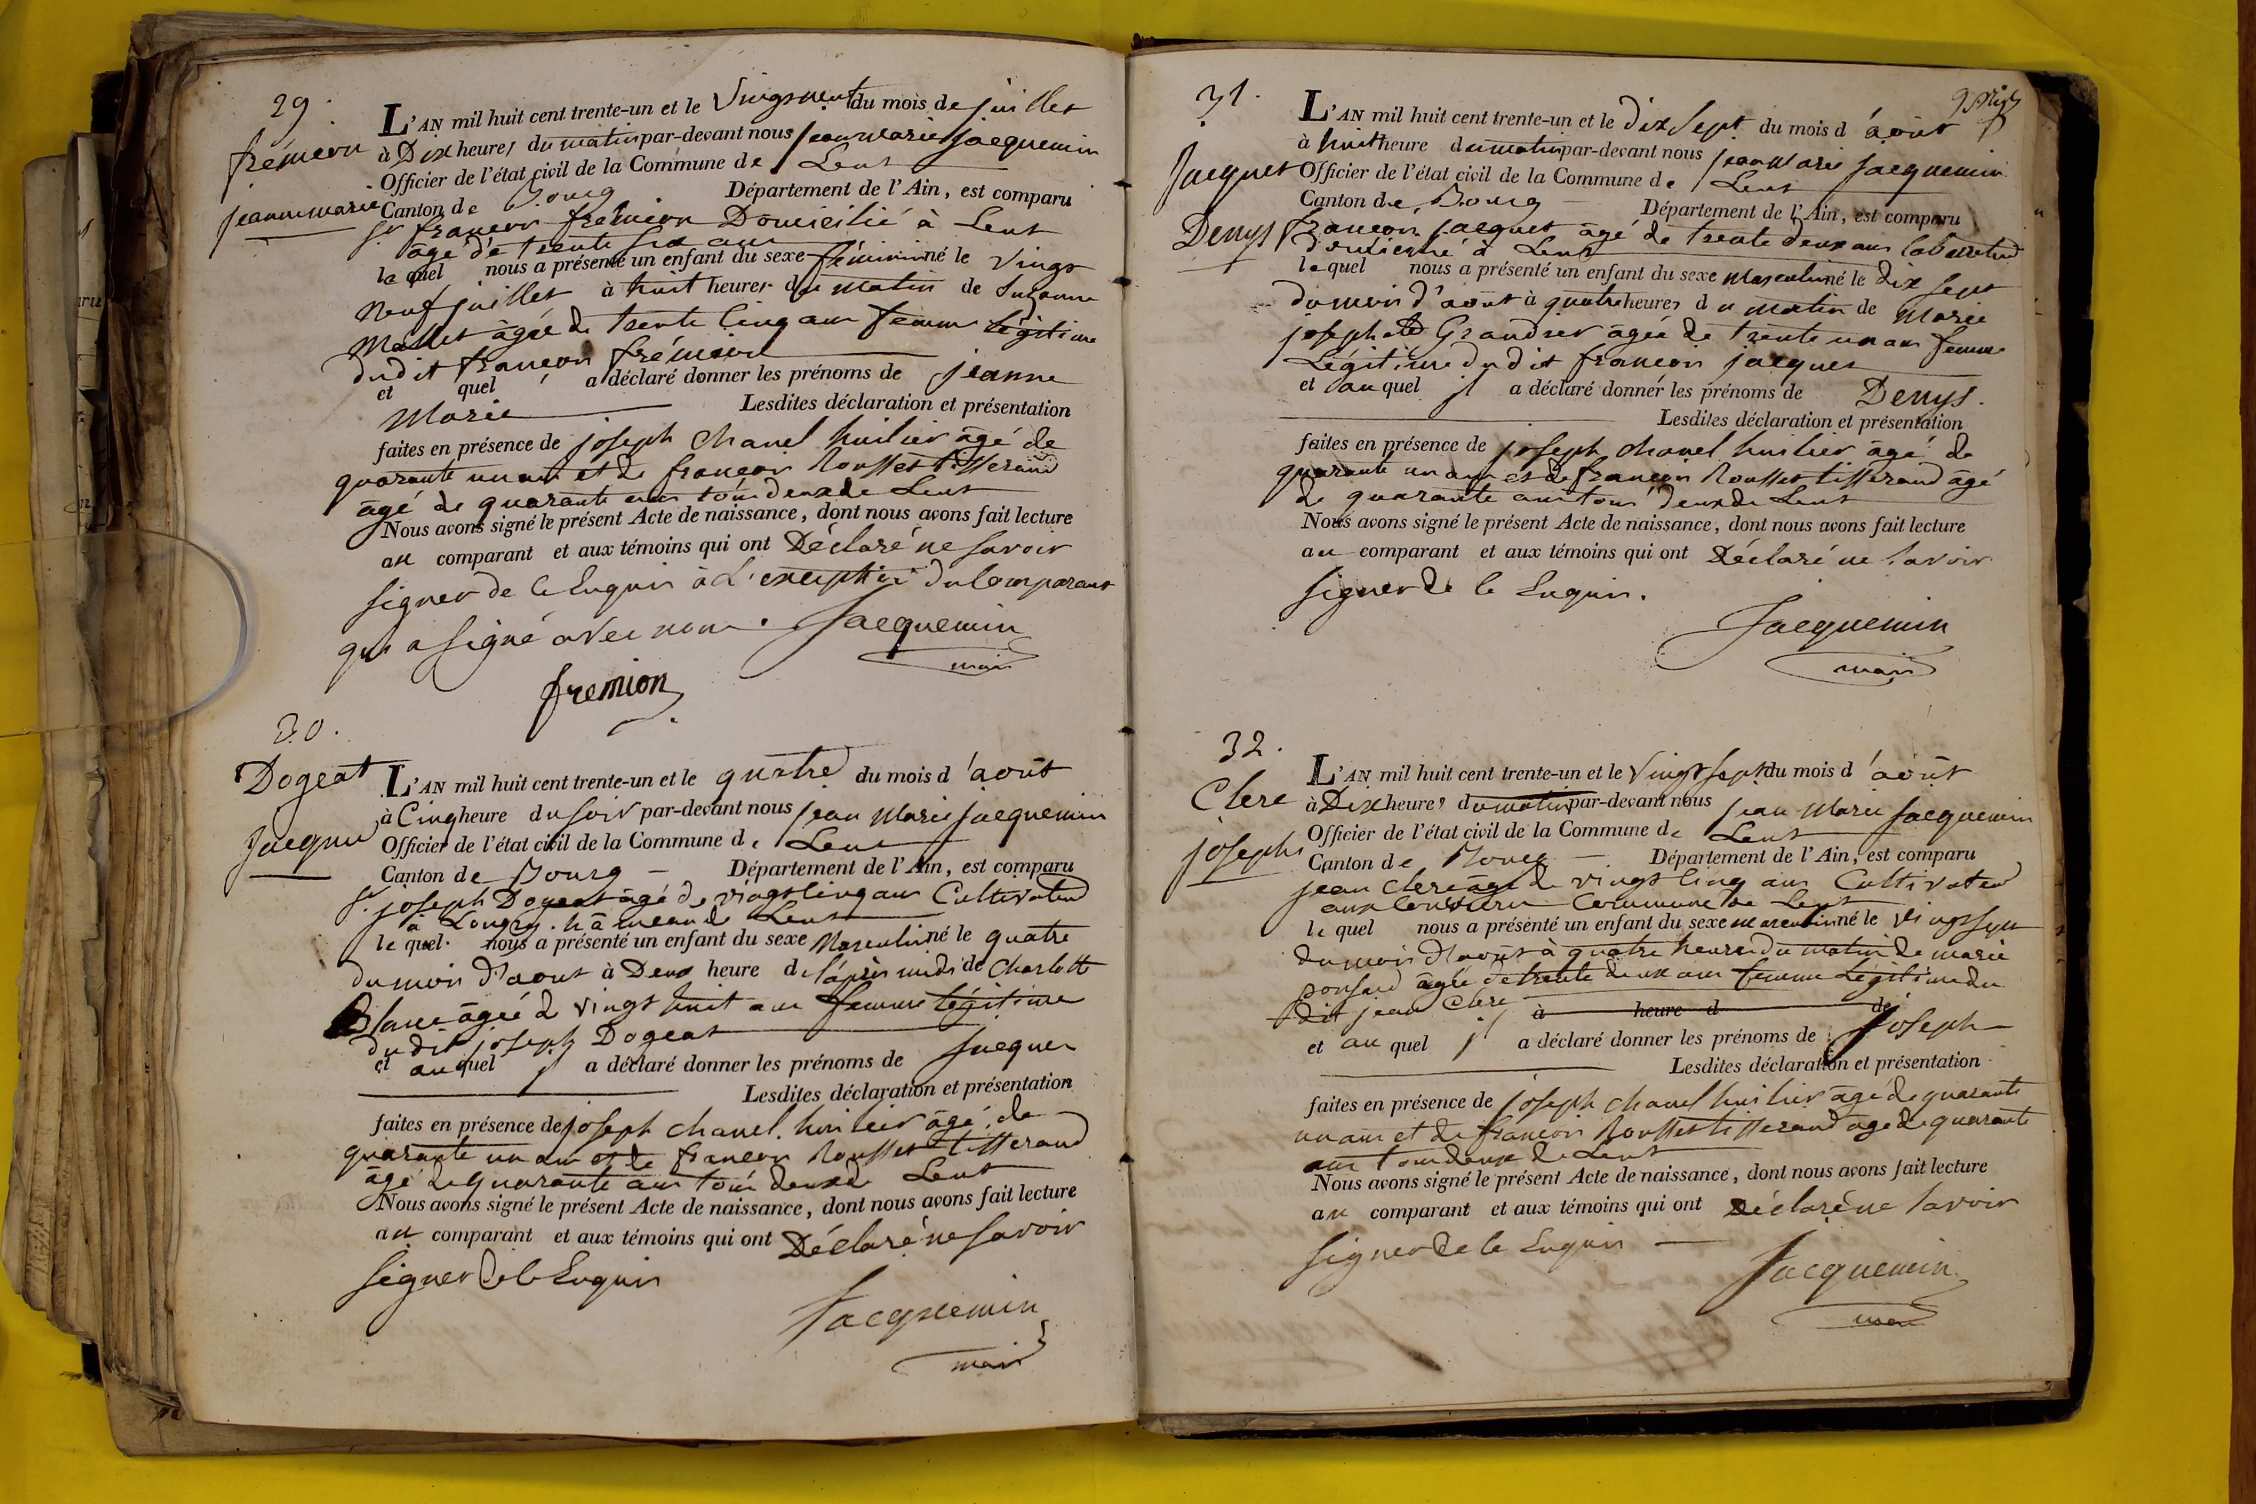 29.
frémion
jeanne marie
L'AN mil huit cent trente-un et le Vingt neuf du mois de juillet
à Dix heures du matin par-devant nous jean marie jacquemin
Officier de l'état civil de la Commune de Lent
Canton de Bourg Département de l'Ain, est comparu
Sr françois frémion Domicilié à Lent
âgé de trente six ans
lequel nous a présenté un enfant du sexe féminin né le vingt
neuf juillet à huit heures du matin de Suzanne
Mallet âgée de trente cinq ans femme légitime
dudit françois frémion
et quel a déclaré donner les prénoms de jeanne
Marie Lesdites déclaration et présentation
faites en présence de joseph chanel huilier âgé de
quarante un ans et de françois Rousset tisserand
âgé de quarante ans tous deux de Lent
Nous avons signé le présent Acte de naissance, dont nous avons fait lecture
au comparant et aux témoins qui ont Déclaré ne savoir
signer de ce Enquis à L'exception du Comparant
qui a signé avec nous. Jacquemin
maire
fremion
30.
Dogeat
Jacques
L'AN mil huit cent trente-un et le quatre du mois d'août
à Cinq heure du soir par-devant nous jean Marie Jacquemin
Officier de l'état civil de la Commune de Lent
Canton de Bourg Département de l'Ain, est comparu
Sr joseph Dogeat âgé de vingt cinq ans Cultivateur
à Longry. hâmeau de Lent
lequel nous a présenté un enfant du sexe Masculin né le quatre
du mois d'aout à Deux heure de l'après midi de Charlotte
Blanc âgée de vingt huit ans femme légitime
dudit joseph Dogeat
et auquel il a déclaré donner les prénoms de Jacques
Lesdites déclaration et présentation
faites en présence de joseph chanel. huilier âgé de
quarante un ans et de françois Rousset tisserand
âgé de quarante ans tous deux de Lent
Nous avons signé le présent Acte de naissance, dont nous avons fait lecture
au comparant et aux témoins qui ont Déclaré ne savoir
signer de ce Enquis
Jacquemin
maire
31.
Jacquet
Denys
L'AN mil huit cent trente-un et le dix sept du mois d'août
à huit heure du matin par-devant nous jean Marie Jacquemin
Officier de l'état civil de la Commune de Lent
Canton de Bourg Département de l'Ain, est comparu
françois jacquet âgé de trente deux ans laboureur
domicilié à Lent
lequel nous a présenté un enfant du sexe Masculin né le dix sept
du mois d'aout à quatre heures du matin de Marie
josephte Grandser âgée de trente un ans femme
Légitime dudit françois jacquet
et auquel il a déclaré donner les prénoms de Denys.
Lesdites déclaration et présentation
faites en présence de joseph chanel huilier âgé de
quarante un ans et de françois Rousset tisserand âgé
de quarante ans tous deux de Lent
Nous avons signé le présent Acte de naissance, dont nous avons fait lecture
au comparant et aux témoins qui ont Déclaré ne savoir
signer de ce Enquis.
Jacquemin
maire
32.
Clerc
joseph
L'AN mil huit cent trente-un et le Vingt sept du mois d'août
à Dix heures du matin par-devant nous jean Marie Jacquemin
Officier de l'état civil de la Commune de Lent
Canton de Bourg Département de l'Ain, est comparu
jean Clerc âgé de vingt cinq ans Cultivateur
Commune de Lent
lequel nous a présenté un enfant du sexe masculin né le vingt sept
du mois d'août à quatre heures du matin de marie
ponsard âgée de trente deux ans femme Légitime du
dit jean Clerc à heure d de
et au quel il a déclaré donner les prénoms de Joseph
Lesdites déclaration et présentation
faites en présence de joseph chanel huilier âgé de quarante
un ans et de françois Rousset tisserand âgé de quarante
ans tous deux de Lent
Nous avons signé le présent Acte de naissance, dont nous avons fait lecture
au comparant et aux témoins qui ont Déclaré ne savoir
signer de ce Enquis
Jacquemin
maire